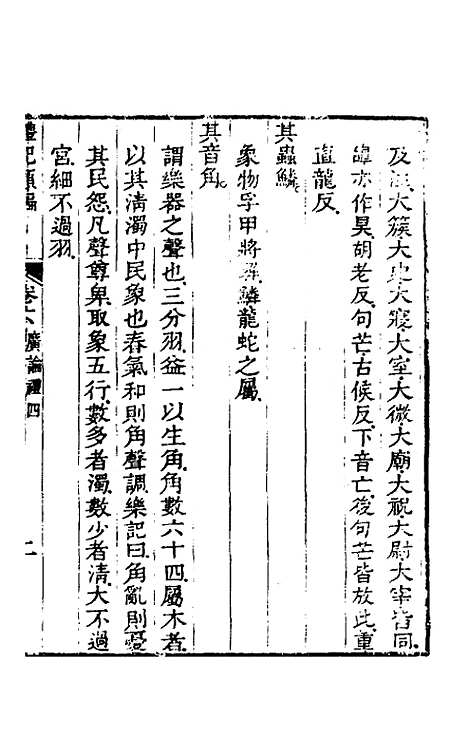 及注大簇大史大寢大室大微大廟大祝大尉大宰皆同
皞亦作昊胡老反句芒古候反下音亡後句芒皆放此重
直龍反
其蟲鱗
象物孚甲將解鱗龍蛇之屬
其音角
謂樂器之聲也三分羽益一以生角角數六十四屬木者
以其清濁中民象也春氣和則角聲調樂記曰角亂則憂
其民怨凡聲尊卑取象五行數多者濁數少者清大不過
宮細不過羽
卷六 廣論禮四 二